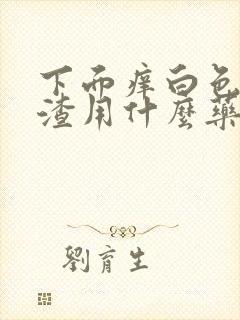 下而痒白色
渣用什麼藥
劉育生